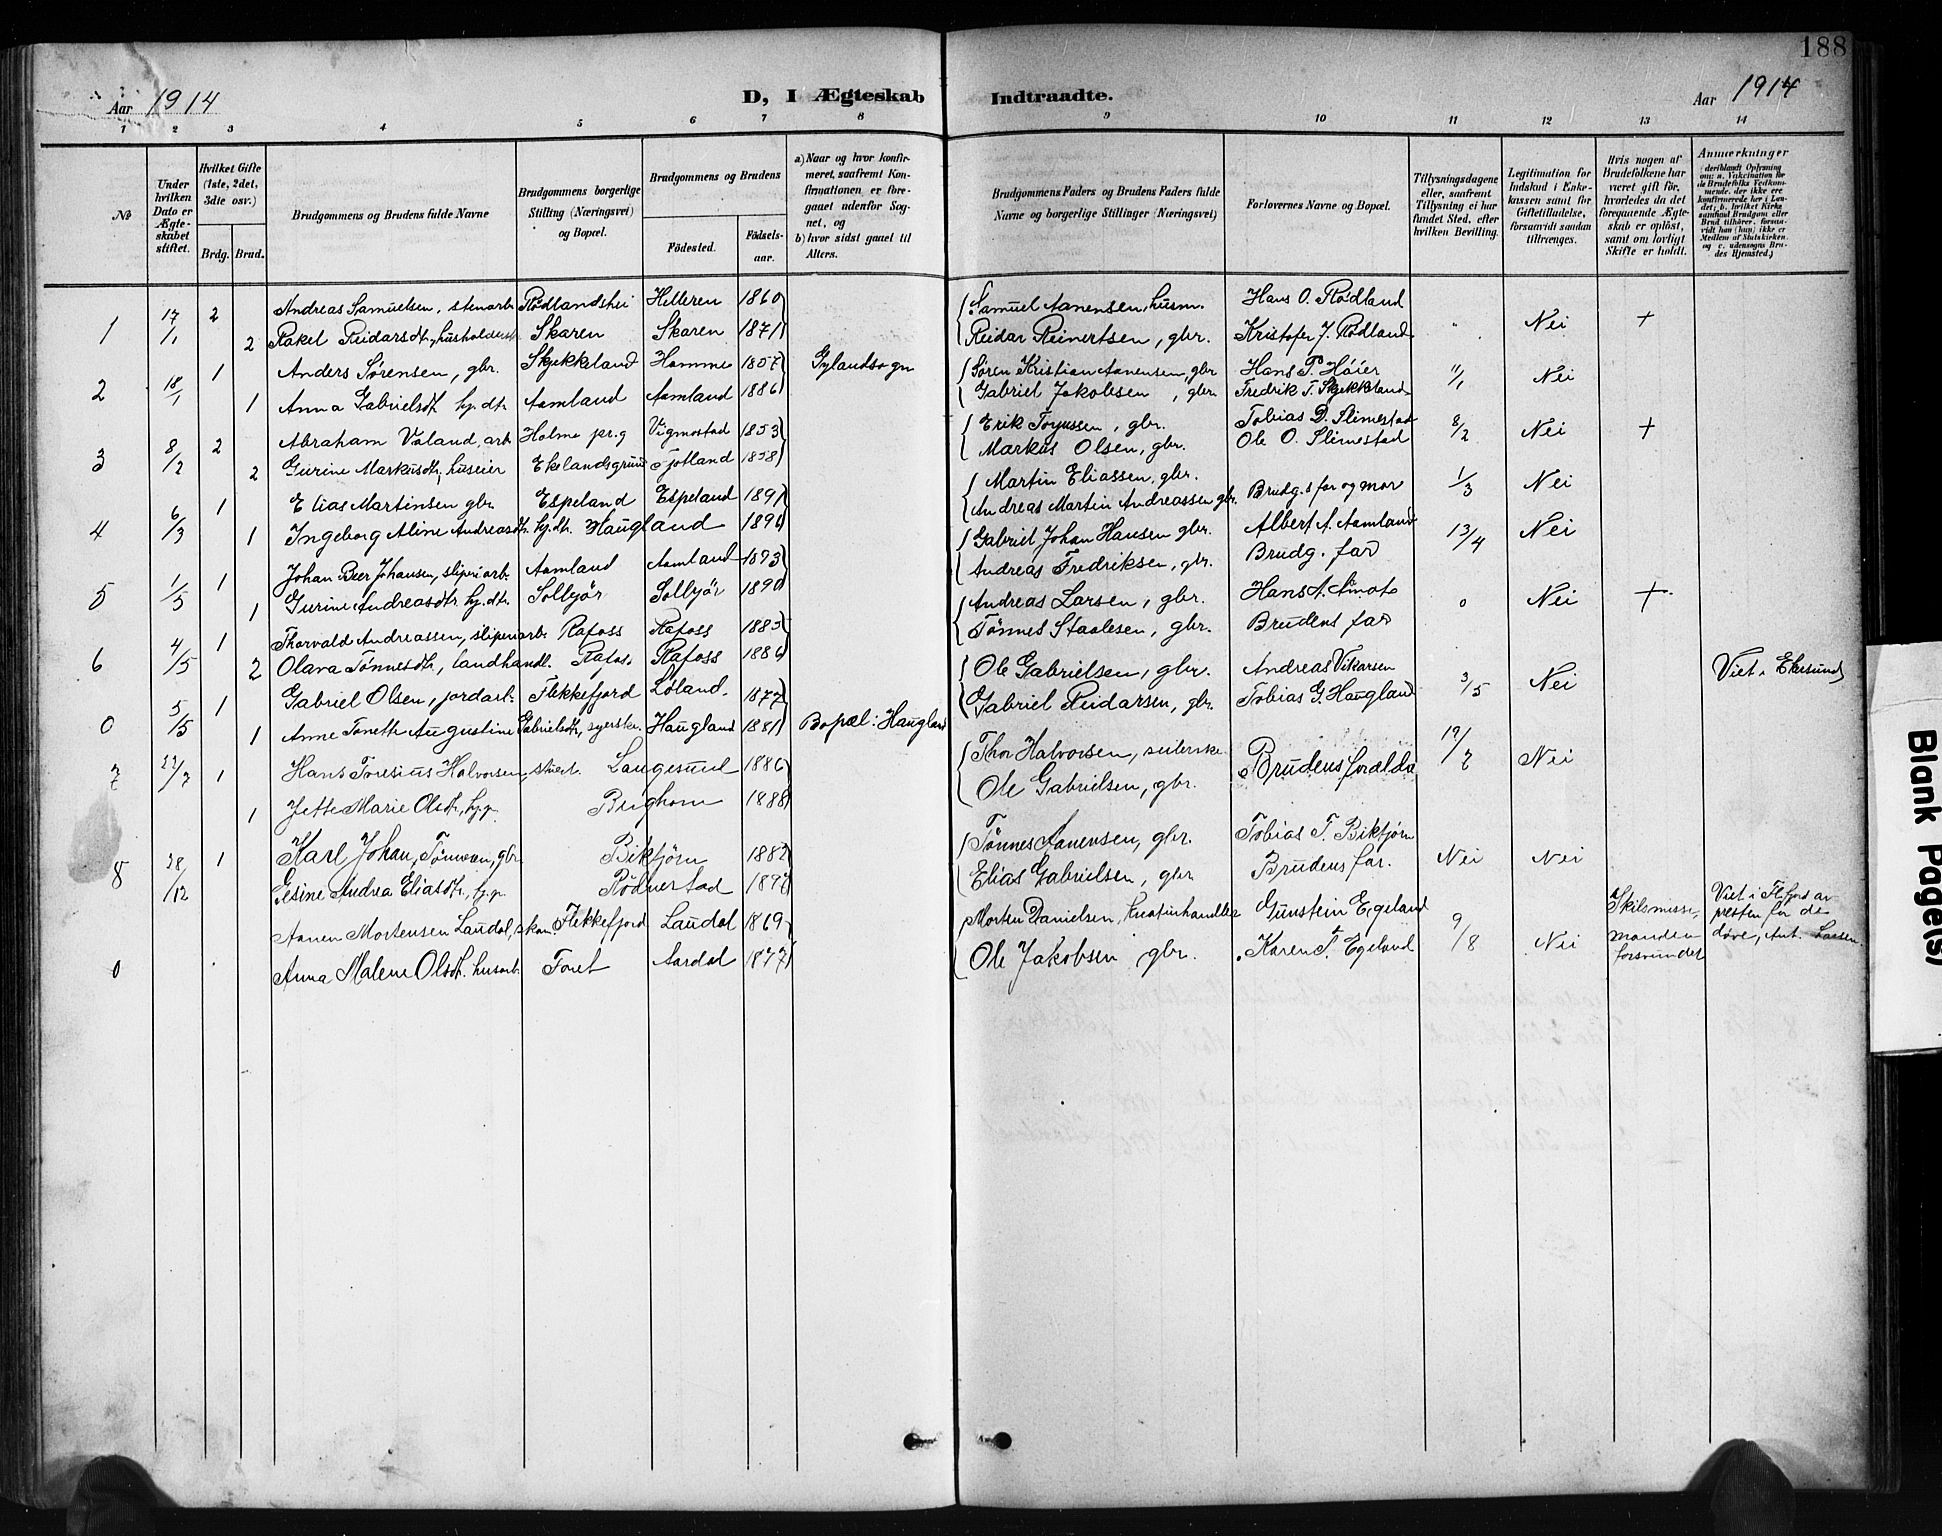 188
Aar 1914
D, I Ægteskab Indtraadte.
Aar 1914
1 2 3 4 5 6 7 8 9 10 11 12 13 14
No
Under hvilken Dato er Ægteskabet stiftet.
Hvilket Gifte (1ste, 2det, 3die osv.)
Brdg. Brud.
Brudgommens og Brudens fulde Navne
Brudgommens borgerlige Stilling (Næringsvei) og Bopæl.
Brudgommens og Brudens
Fødested.
Fødselsaar.
a) Naar og hvor konfirmeret, saafremt Konfirmationen er foregaaet udenfor Sognet, og
b) hvor sidst gaaet til Alters.
Brudgommens Faders og Brudens Faders fulde Navne og borgerlige Stillinger (Næringsvei)
Forlovernes Navne og Bopæl.
Tillysningsdagene eller, saafremt Tillysning ei har fundet Sted, efter hvilken Bevilling.
Legitimation for Indskud i Enkekassen samt for Giftetilladelse, forsaavidt saadan tiltrænges.
Hvis nogen af Brudefolkene har været gift før, hvorledes da det foregaaende Ægteskab er opløst, samt om lovligt Skifte er holdt.
Anmærkninger
(deriblandt Oplysning om: a. Vakcination for de Brudefolks Vedkommende, der ikke ere konfirmerede her i Landet; b. hvilket Kirkesamfund Brudgom eller Brud tilhører, forsaavidt han (hun) ikke er Medlem af Statskirken, og c. udensogns Brudes Hjemsted.)
1 17/1 2 Andreas Samuelsen, stenarb. Rødlandshei Helleren 1860 Samuel Aanensen, husm. Hans O. Rødland
2 Rakel Reidarsdt., husholderske Skaren Skaren 1871 Reidar Reinertsen, gbr. Kristofer J. Rødland " Nei +
2 18/1 1 Anders Sørensen, gbr. Skjekkeland Homme 1857 Gylandsogn Søren Kristian Aanensen, gbr Hans P. Høier 11/1 Nei
1 Anna Gabrielsdt. hj.dtr. Aamland Aamland 1886 Gabriel Jakobsen, gbr. Fredrik T. Skjekkeland
3 8/2 2 Abraham Valand, arb. Holme pr.g Vigmostad 1853 Erik Torjussen, gbr. Tobias D. Slimestad 8/2 Nei +
2 Gurine Markusdtr, huseier Ekelandsgrund Fjotland 1858 Markus Olsen, gbr. Ole O. Slimestad
4 6/3 1 Elias Martinsen gbr. Espeland Espeland 1891 Martin Eliassen, gbr. Brudg.s far og mor 1/3 Nei
1 Ingeborg Aline Andreasdtr. hj.dtr. Haugland 1896 Andreas Martin Andreassen gbr.
5 1/5 1 Johan Beer Johansen, sliperiarb. Aamland Aamland 1893 Gabriel Johan Hansen gbr. Albert A. Aamland 13/4 Nei
1 Gurine Andreasdtr. hj.dtr. Sollyør Sollyør 1890 Andreas Fredriksen, gbr. Brudg. far
6 4/5 1 Thorvald Andreassen, sliperiarb. Rafoss Rafoss 1883 Andreas Larsen, gbr. Hans A. Aamot 0 Nei +
2 Olava Tønnesdtr, landhandl. Rafoss Rafoss 1886 Tønnes Staalesen, gbr. Brudens far
0 5/5 1 Gabriel Olsen, jordarb. Flekkefjord Løland. 1877 Ole Gabrielsen, gbr. Andreas Vikarsen 3/5 Nei Viet i Ekersund
1 Anne Tonette Augustine Gabrielsdtr, syerske. Haugland 1881 Bopæl: Haugland Gabriel Reidarsen, gbr. Tobias G. Haugland
7 22/7 1 Hans Toresius Halvorsen, Langesund 1886 Thor Halvorsen, Brudens forældre 19/7 Nei
1 Jette Marie Olsdtr, hj.p. Birghom 1888 Ole Gabrielsen, gbr.
8 28/12 1 Karl Johan Tønnesen, gbr Bikfjørn 1882 Tønnes Aanensen, gbr. Tobias T. Bikfjørn Nei Nei
Gesine Andrea Eliasdtr, hj.p. Rødnerstad 1892 Elias Gabrielsen, gbr Brudens far.
0 Aanen Mortensen Laudal, skom. Flekkefjord Laudal 1869 Morten Danielsen, kreaturhandler Gunstein Egeland 9/8 Nei Skilsmisse, manden forsvundet Viet i Flfjord av presten for de døve, Ant. Larsen
Anna Malene Olsdt. husarb. Foret Aardal 1877 Ole Jakobsen gbr. Karen T. Egeland
Blank Page(s)